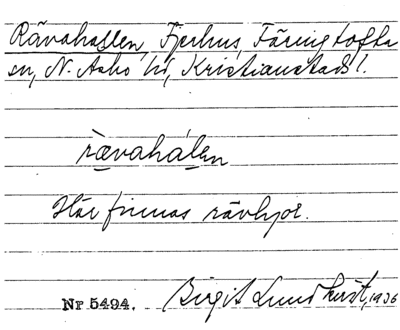 Rävahallen, Fjerhus, Färingtofta
sn, N. Åsbo hd, Kristianstads l.
rævahálen
Här finnas rävhjor.
Nr 5494. Birgit Lundkvist, 1936